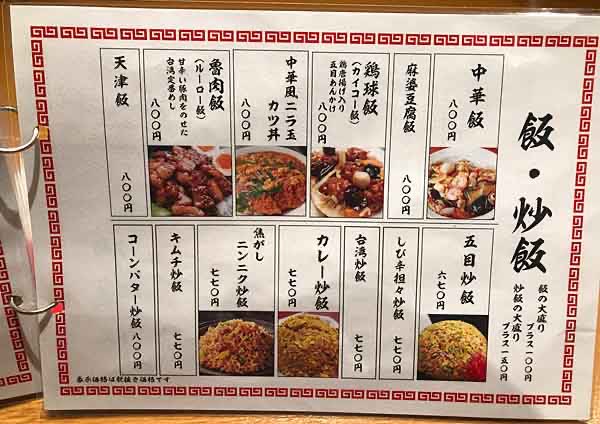 飯・炒飯
飯の大盛り
プラス一〇〇円
炒飯の大盛り
プラス一五〇円
中華飯
八〇〇円
麻婆豆腐飯
八〇〇円
鶏球飯
(カイコー飯)
鶏唐揚げ入り
五目あんかけ
八〇〇円
中華風ニラ玉
カツ丼
八〇〇円
魯肉飯
(ルーロー飯)
甘辛い豚肉をのせた
台湾定番めし
八〇〇円
天津飯
八〇〇円
五目炒飯
六七〇円
しび辛担々炒飯
七七〇円
台湾炒飯
七七〇円
カレー炒飯
七七〇円
焦がし
ニンニク炒飯
七七〇円
キムチ炒飯
七七〇円
コーンバター炒飯
八〇〇円
表示価格は税抜き価格です